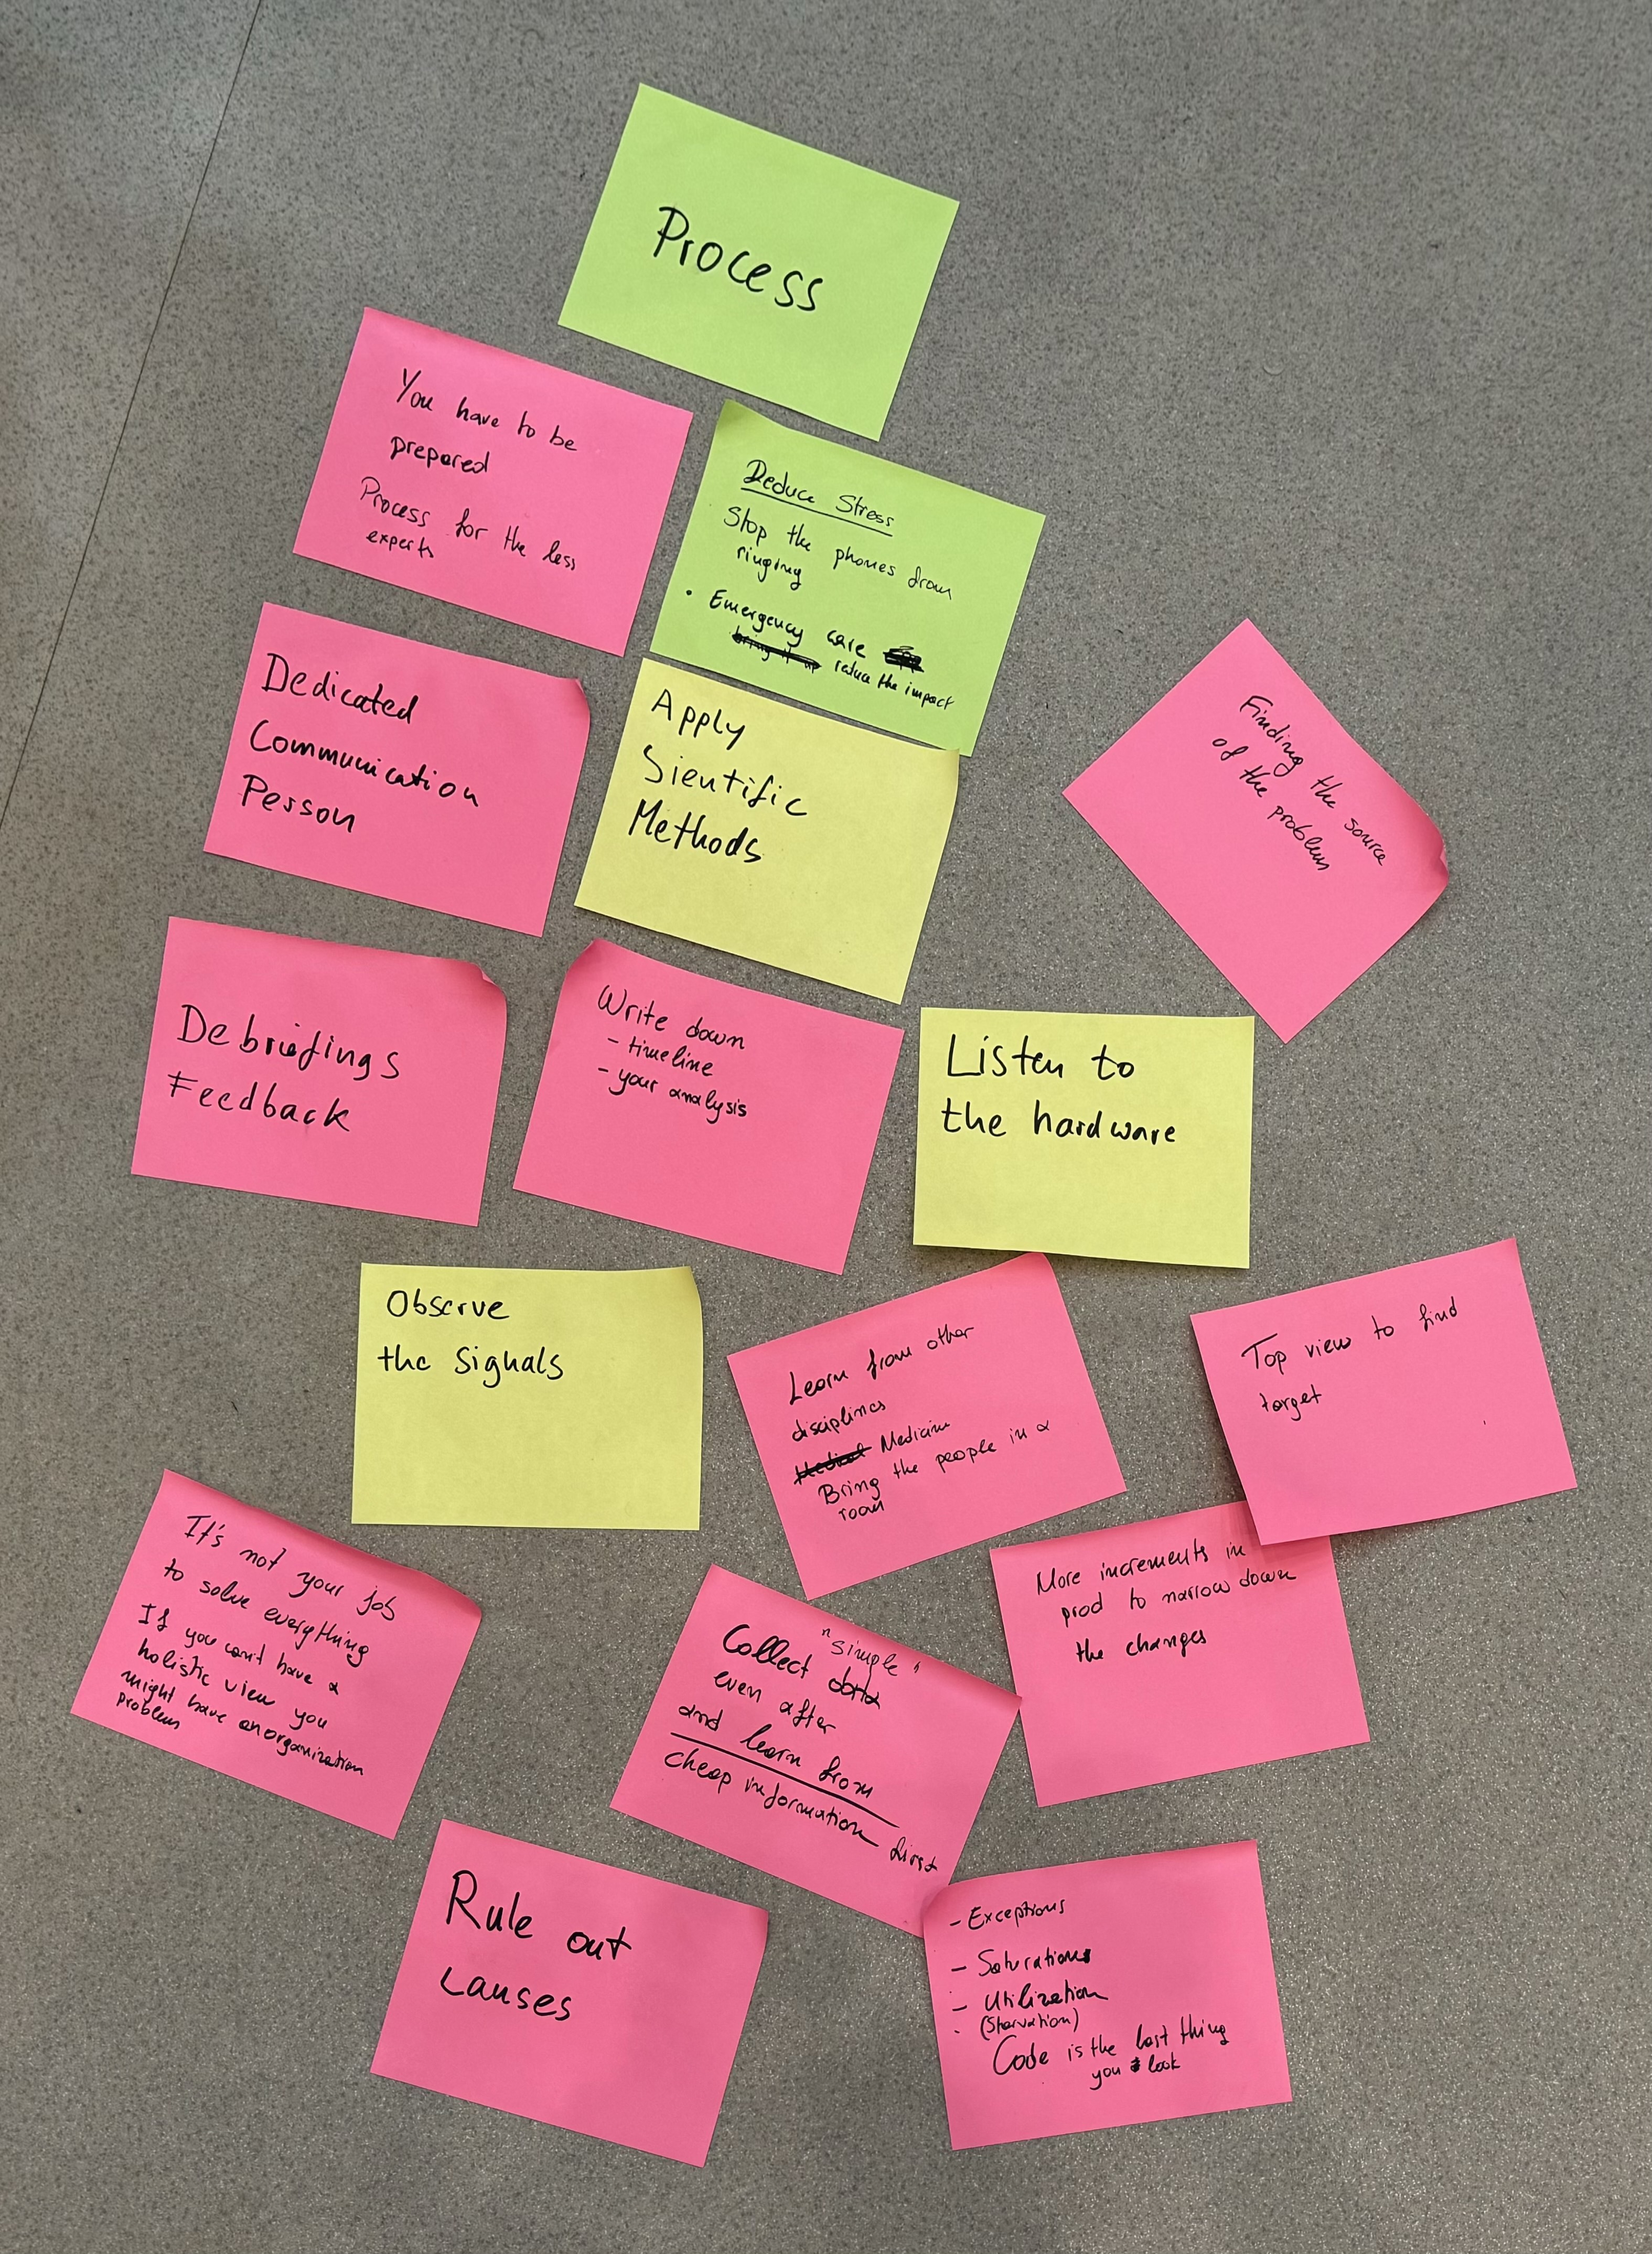 Process
You have to be
prepared
Process for the less
experts
Reduce Stress
Stop the phones from
ringing
• Emergency care
reduce the impact
Dedicated
Communication
Person
Apply
Sientific
Methods
Finding the source
of the problem
Debriefings
Feedback
Write down
- timeline
- your analysis
Listen to
the hardware
Observe
the signals
Learn from other
disciplines
Medical Medicin
Bring the people in a
room
Top view to find
target
It's not your job
to solve everything
If you can't have a
holistic view you
might have an organization
problem
"simple"
Collect data
even after
and learn from
cheap information first
More increments in
prod to narrow down
the changes
Rule out
causes
- Exceptions
- Saturations
- Utilization
(Starvation)
Code is the last thing
you look